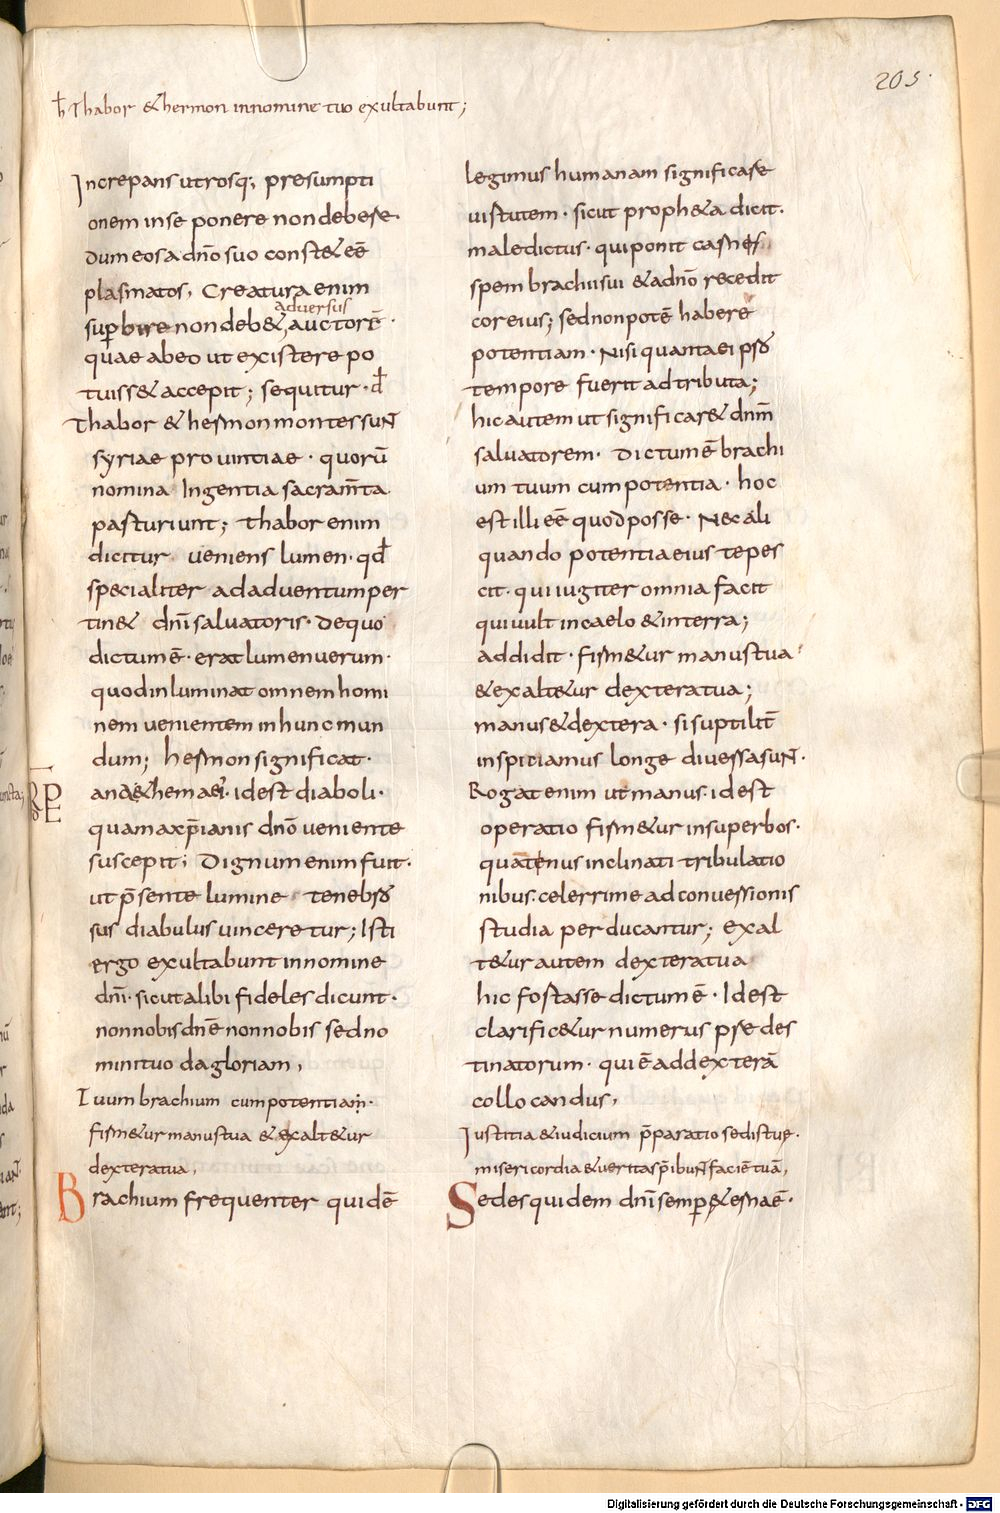 205.
ħ Thabor & hermon innomine tuo exultabunt;
Increpans utrosq; presumpti
onem inse ponere nondebere.
dum eos a dño suo const& eē
plasmatos, Creatura enim
adversus
sup̱bire non deb&, auctorē.
quae abeo ut existere po
tuiss& accepit; sequitur.
Thabor & hermon montes sunt
syriae prouintiae. quorū
nomina Ingentia sacram̄ta
pasturiunt; Thabor enim
dicitur ueniens lumen. qđ
specialiter adaduentum per
tin& dñi saluatoris. dequo
dictum ē. erat lumen uerum.
quodinluminat omnem homi
nem uenientem in hunc mun
dum; hermon significat.
anathema ei. idest diaboli.
quam axp̄ianis dñō ueniente
suscepit; Dignum enim fuit.
ut p̄sente lumine tenebro
sus diabulus uinceretur; Isti
ergo exultabunt innomine
dñi. sicut alibi fideles dicunt.
nonnobis dñē nonnobis sed no
mini tuo da gloriam,
Tuum brachium cum potentiam.
firm&ur manus tua & exalt&ur
dextera tua,
Brachium frequenter quidē
legimus humanam significare
uirtutem. sicut proph&a dicit.
maledictus. qui ponit carnes
spem brachii sui & adñō recedit
cor eius; sed non potē habere
potentiam. Nisi quanta ei pro
tempore fuerit adtributa;
hic autem ut significar& dnm̄
saluatorem. Dictum ē brachi
um tuum cum potentia. hoc
est illi eē quod posse. Nec ali
quando potentia eius tepes
cit. qui iugiter omnia facit
qui uult in caelo & in terra;
addidit. firm&ur manus tua
& exalt&ur dextera tua;
manus & dextera. si suptilit̄
inspiciamus longe diuersa sunt.
Rogat enim ut manus. idest
operatio firm&ur in superbos.
quatenus inclinati tribulatio
nibus. celerrime ad conuersionis
studia perducantur; exal
t&ur autem dextera tua
hic fortasse dictum ē. Idest
clarific&ur numerus prede
tinatorum. qui ē ad dexterā
collocandus,
Iustitia & iudicium p̄paratio sedis tuę.
misericordia & ueritas p̄ibunt faciē tuā,
Sedes quidem dñi semp̱ &erna ē.
Digitalisierung gefördert durch die Deutsche Forschungsgemeinschaft - DFG